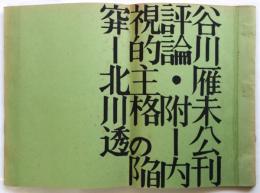 谷川雁未公刊
評論・附ー内
視的主格の陥
穽ー北川透